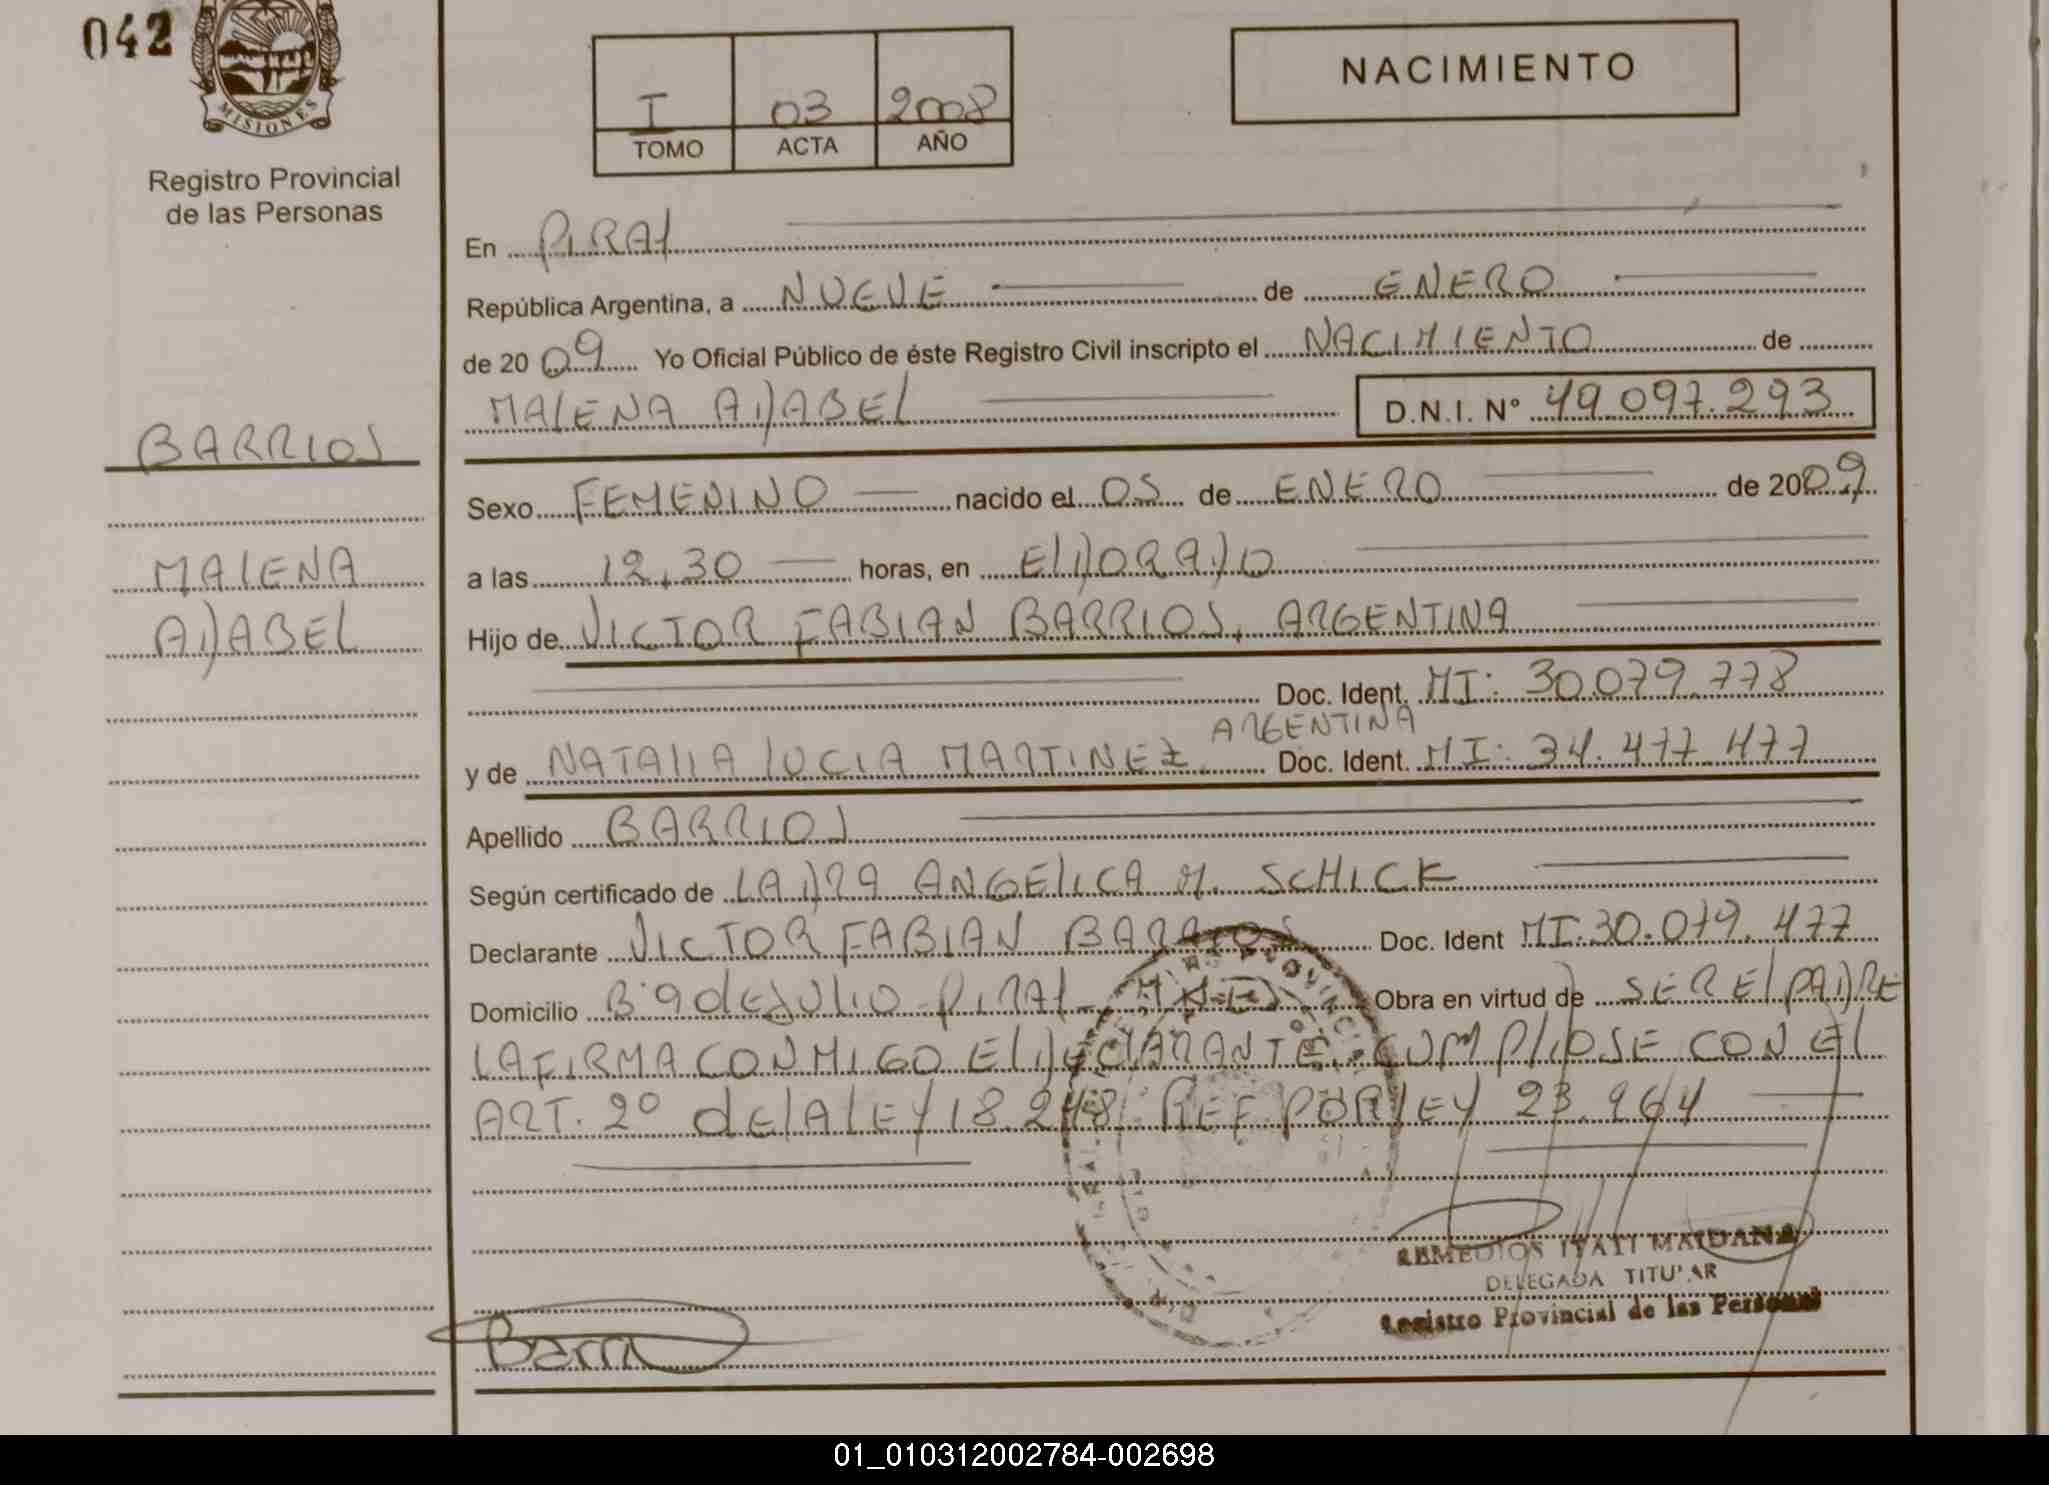 042
MISIONES
Registro Provincial
de las Personas
I 03 2008
TOMO ACTA AÑO
NACIMIENTO
En PIRAY
República Argentina, a NUEVE de ENERO
de 2009 Yo Oficial Público de éste Registro Civil inscripto el NACIMIENTO de
MALENA ADABEL D.N.I. Nº 49.097.293
BARRIOS
MALENA
ADABEL
Sexo FEMENINO nacido el 05 de ENERO de 2009
a las 12,30 horas, en ELDORADO
Hijo de VICTOR FABIAN BARRIOS, ARGENTINA
Doc. Ident. MI: 30.079.778
ARGENTINA
y de NATALIA LUCIA MARTINEZ Doc. Ident. MI: 34.477.477
Apellido BARRIOS
Según certificado de LA DRA ANGELICA M. SCHICK
Declarante VICTOR FABIAN BARRIOS Doc. Ident MI: 30.079.477
Domicilio Bº 9 dE JULIO - PIRAY - MNES Obra en virtud de SER EL PADRE
LA FIRMA CONMIGO EL DECLARANTE. CUMPLIOSE CON EL
ART. 2º dE LA LEY 18.248 REF POR LEY 23.964
REMEDIOS ITATI MAIDANA
DELEGADA TITULAR
Registro Provincial de las Personas
01_010312002784-002698